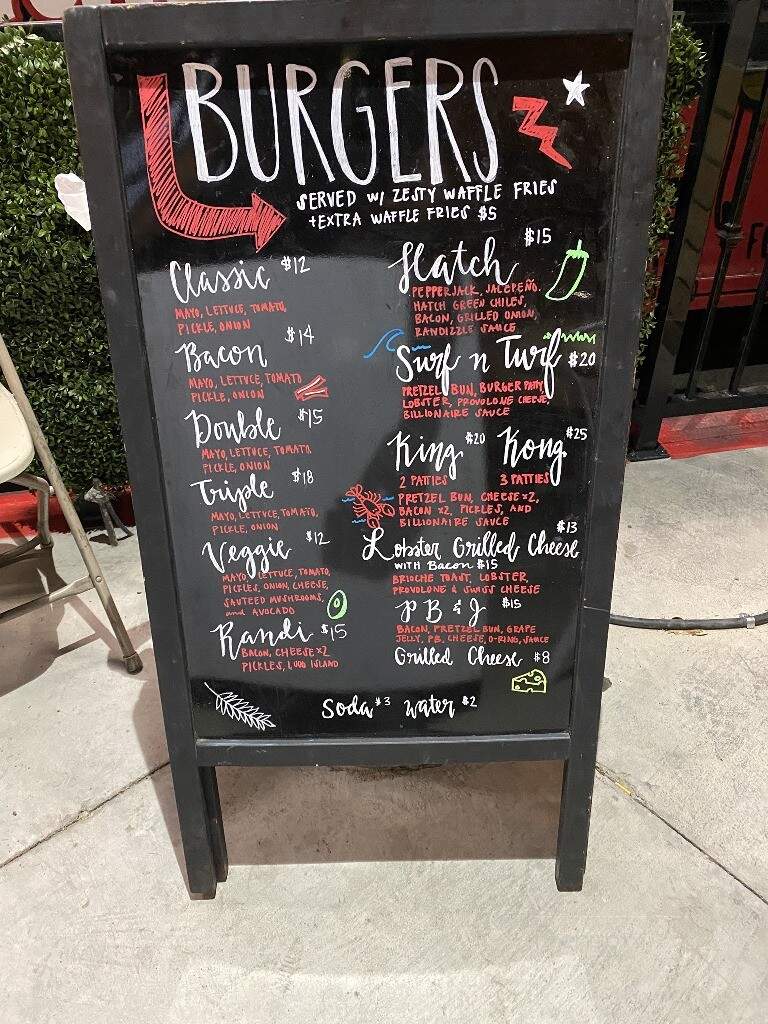 BURGERS
SERVED W/ ZESTY WAFFLE FRIES
+EXTRA WAFFLE FRIES $5
Classic $12
MAYO, LETTUCE, TOMATO,
PICKLE, ONION
Bacon $14
MAYO, LETTUCE, TOMATO
PICKLE, ONION
Double $15
MAYO, LETTUCE, TOMATO,
PICKLE, ONION
Triple $18
MAYO, LETTUCE, TOMATO,
PICKLE, ONION
Veggie $12
MAYO, LETTUCE, TOMATO,
PICKLES, ONION, CHEESE,
SAUTEED MUSHROOMS,
and AVOCADO
Randi $15
BACON, CHEESE x2
PICKLES, 1,000 ISLAND
Hatch $15
PEPPERJACK, JALEPEÑO,
HATCH GREEN CHILES,
BACON, GRILLED ONION,
RANDIZZLE SAUCE
Surf n Turf $20
PRETZEL BUN, BURGER PATTY,
LOBSTER, PROVOLONE CHEESE,
BILLIONAIRE SAUCE
King $20 Kong $25
2 PATTIES 3 PATTIES
PRETZEL BUN, CHEESE x2,
BACON x2, PICKLES, AND
BILLIONAIRE SAUCE
Lobster Grilled Cheese $13
WITH Bacon $15
BRIOCHE TOAST, LOBSTER,
PROVOLONE & SWISS CHEESE
PB & J $15
BACON, PRETZEL BUN, GRAPE
JELLY, PB, CHEESE, O-RING, SAUCE
Grilled Cheese $8
Soda $3 Water $2